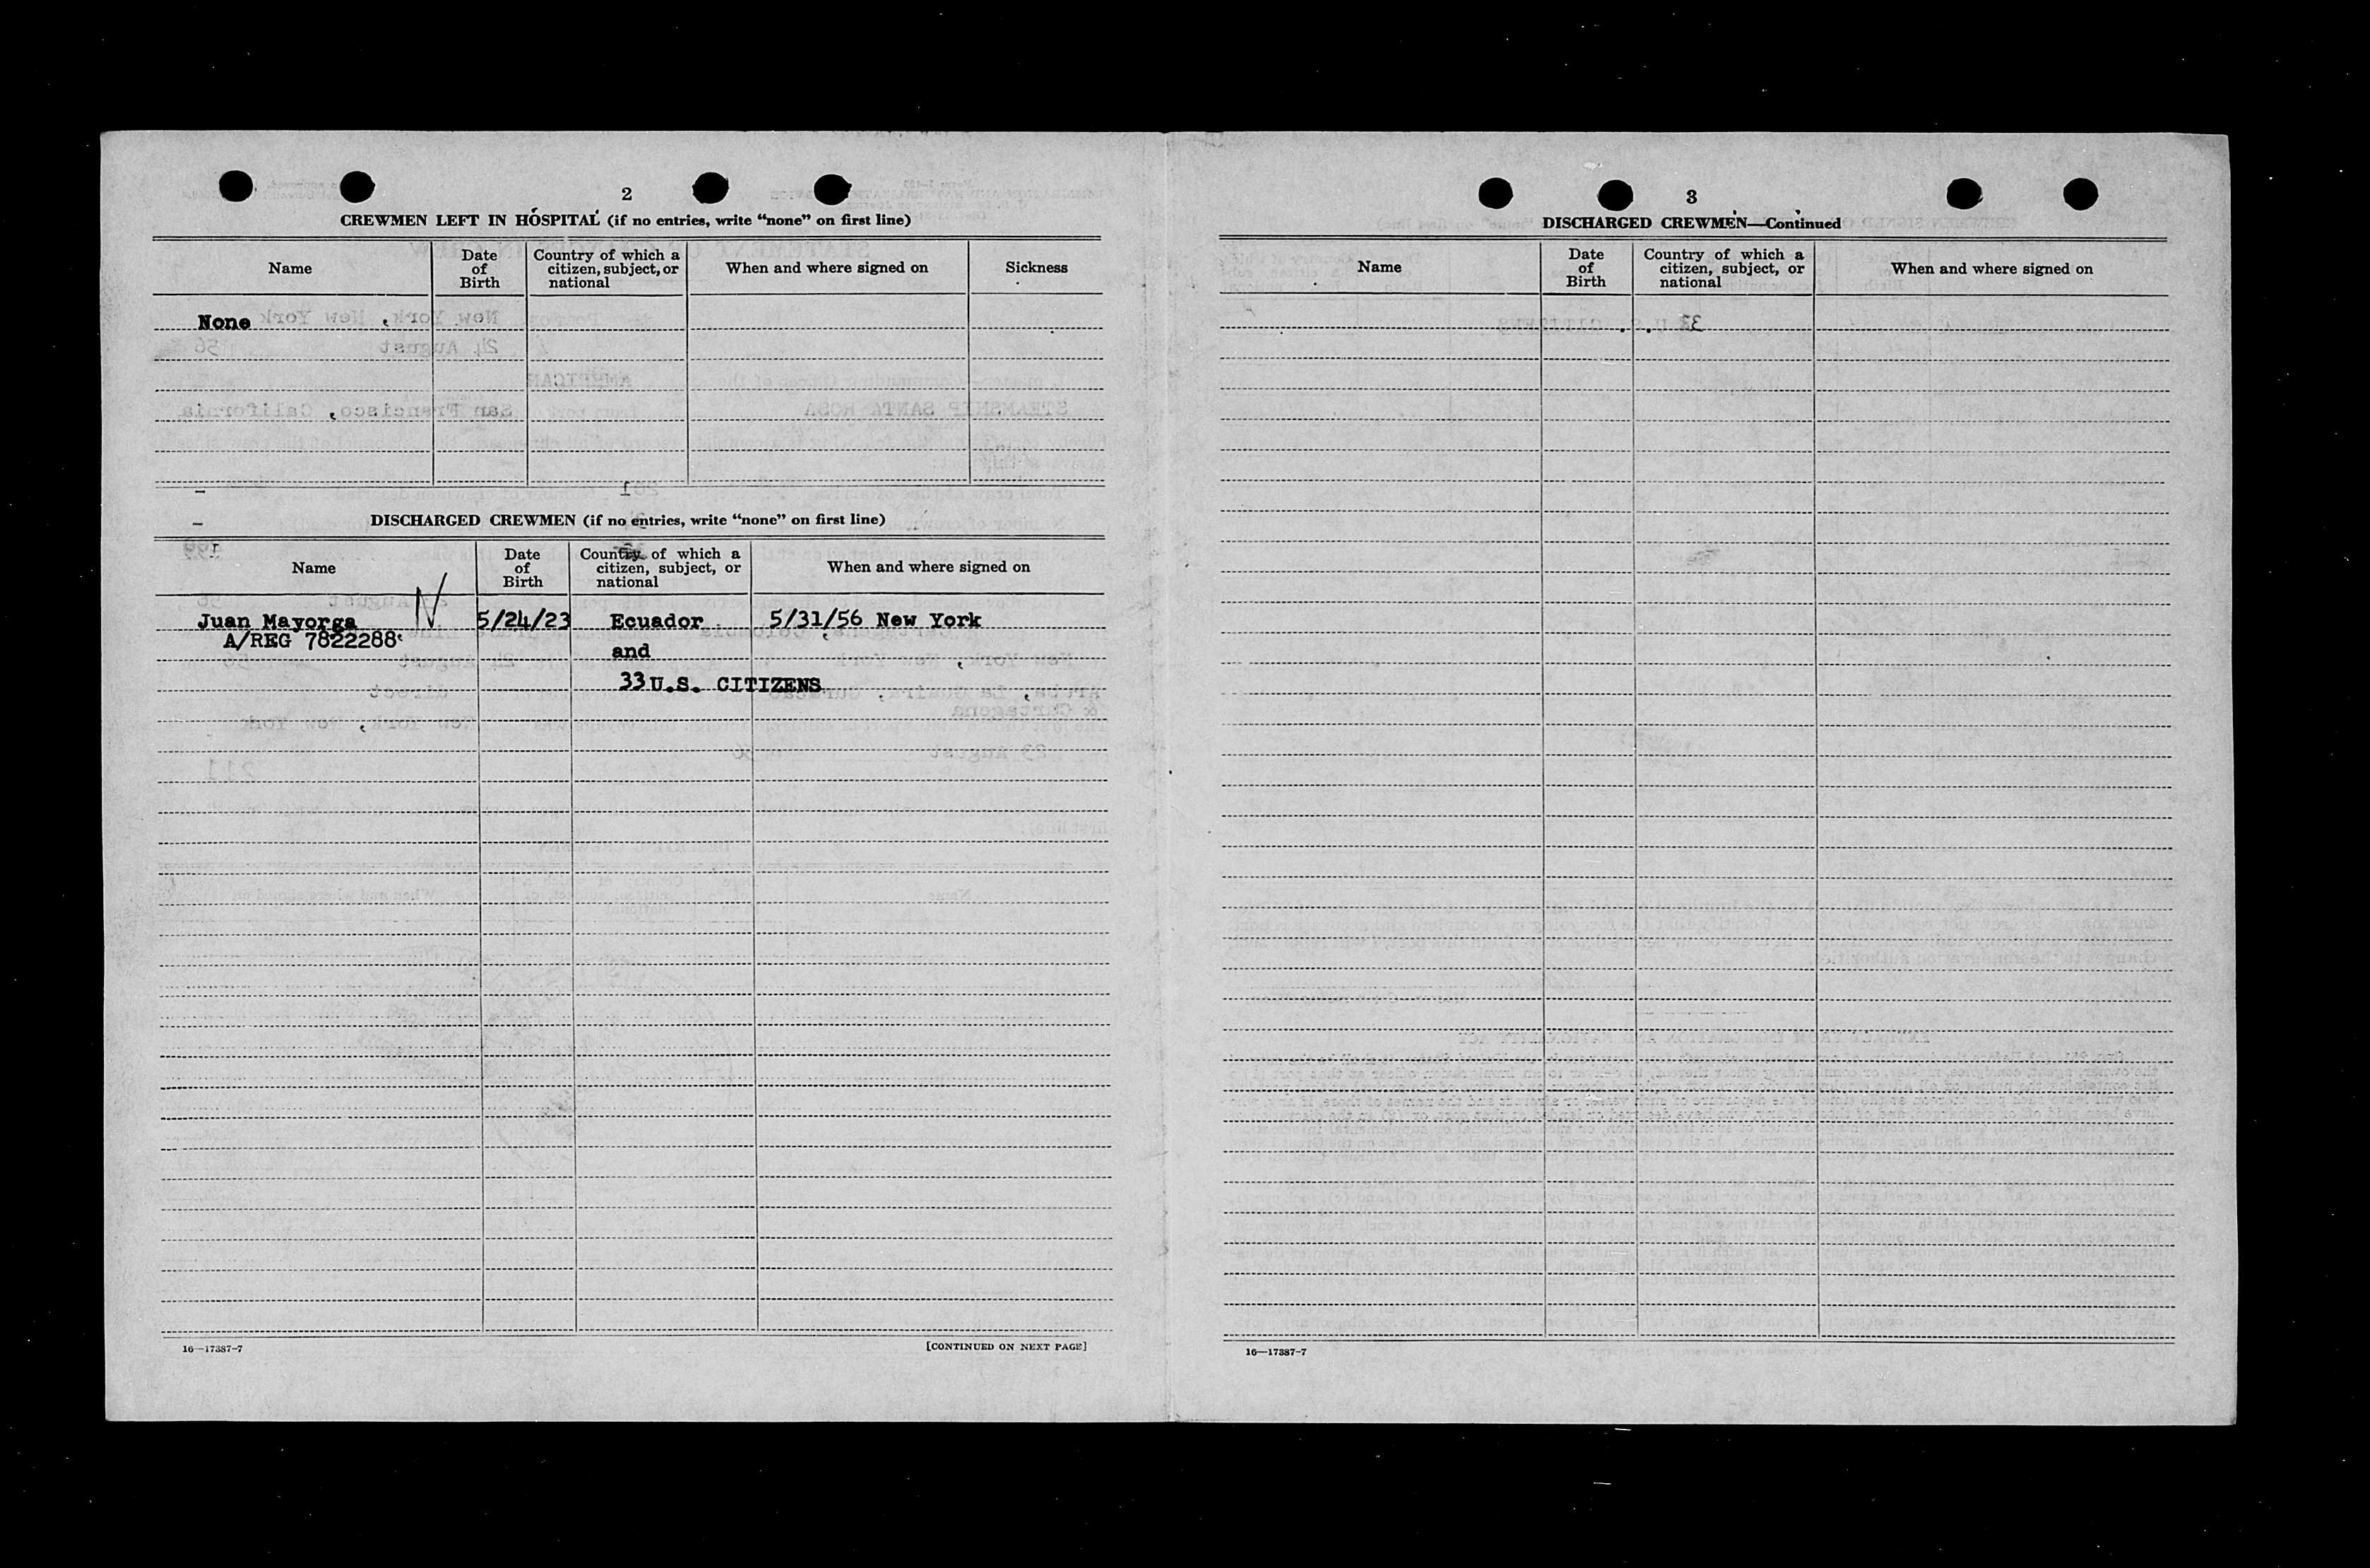 2
CREWMEN LEFT IN HOSPITAL (if no entries, write "none" on first line)
Name
Date of Birth
Country of which a citizen, subject, or national
When and where signed on
Sickness
None
DISCHARGED CREWMEN (if no entries, write "none" on first line)
Name
Date of Birth
Country of which a citizen, subject, or national
When and where signed on
Juan Mayorga N 5/24/23 Ecuador 5/31/56 New York
A/REG 7822288
and
33 U.S. CITIZENS
16—17387-7
[CONTINUED ON NEXT PAGE]
3
DISCHARGED CREWMEN—Continued
Name
Date of Birth
Country of which a citizen, subject, or national
When and where signed on
16—17387-7